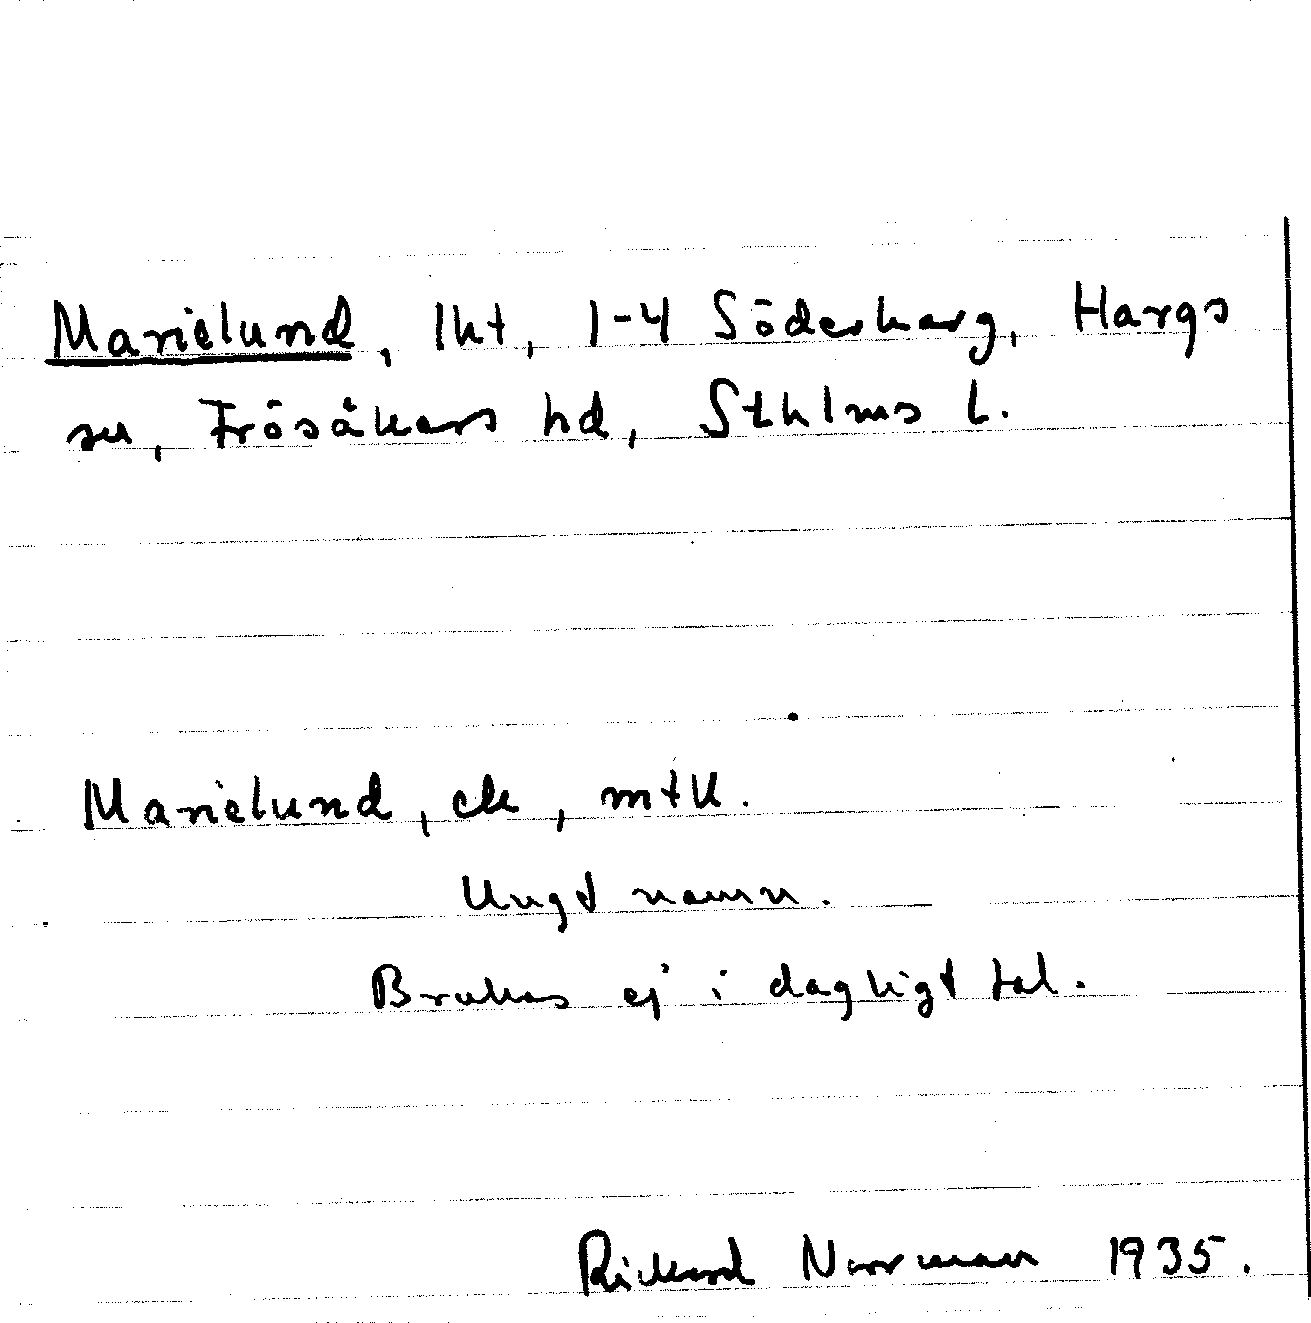 Marielund, lht, 1-4 Söderharg, Hargs
sn, Frösåkers hd, Sthlms l.
Marielund, ek, mtk.
Ungt namn.
Brukas ej i dagligt tal.
Rickard Norrman 1935.